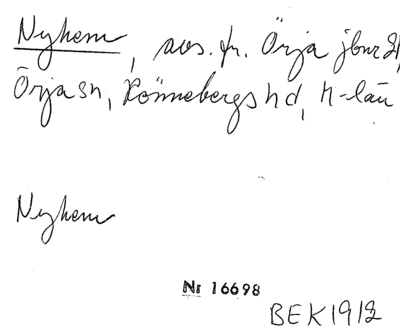 Nyhem, avs. fr. Örja jbnr 21,
Örja sn, Rönnebergs hd, M-län
Nyhem
Nr 16698
BEK 1912